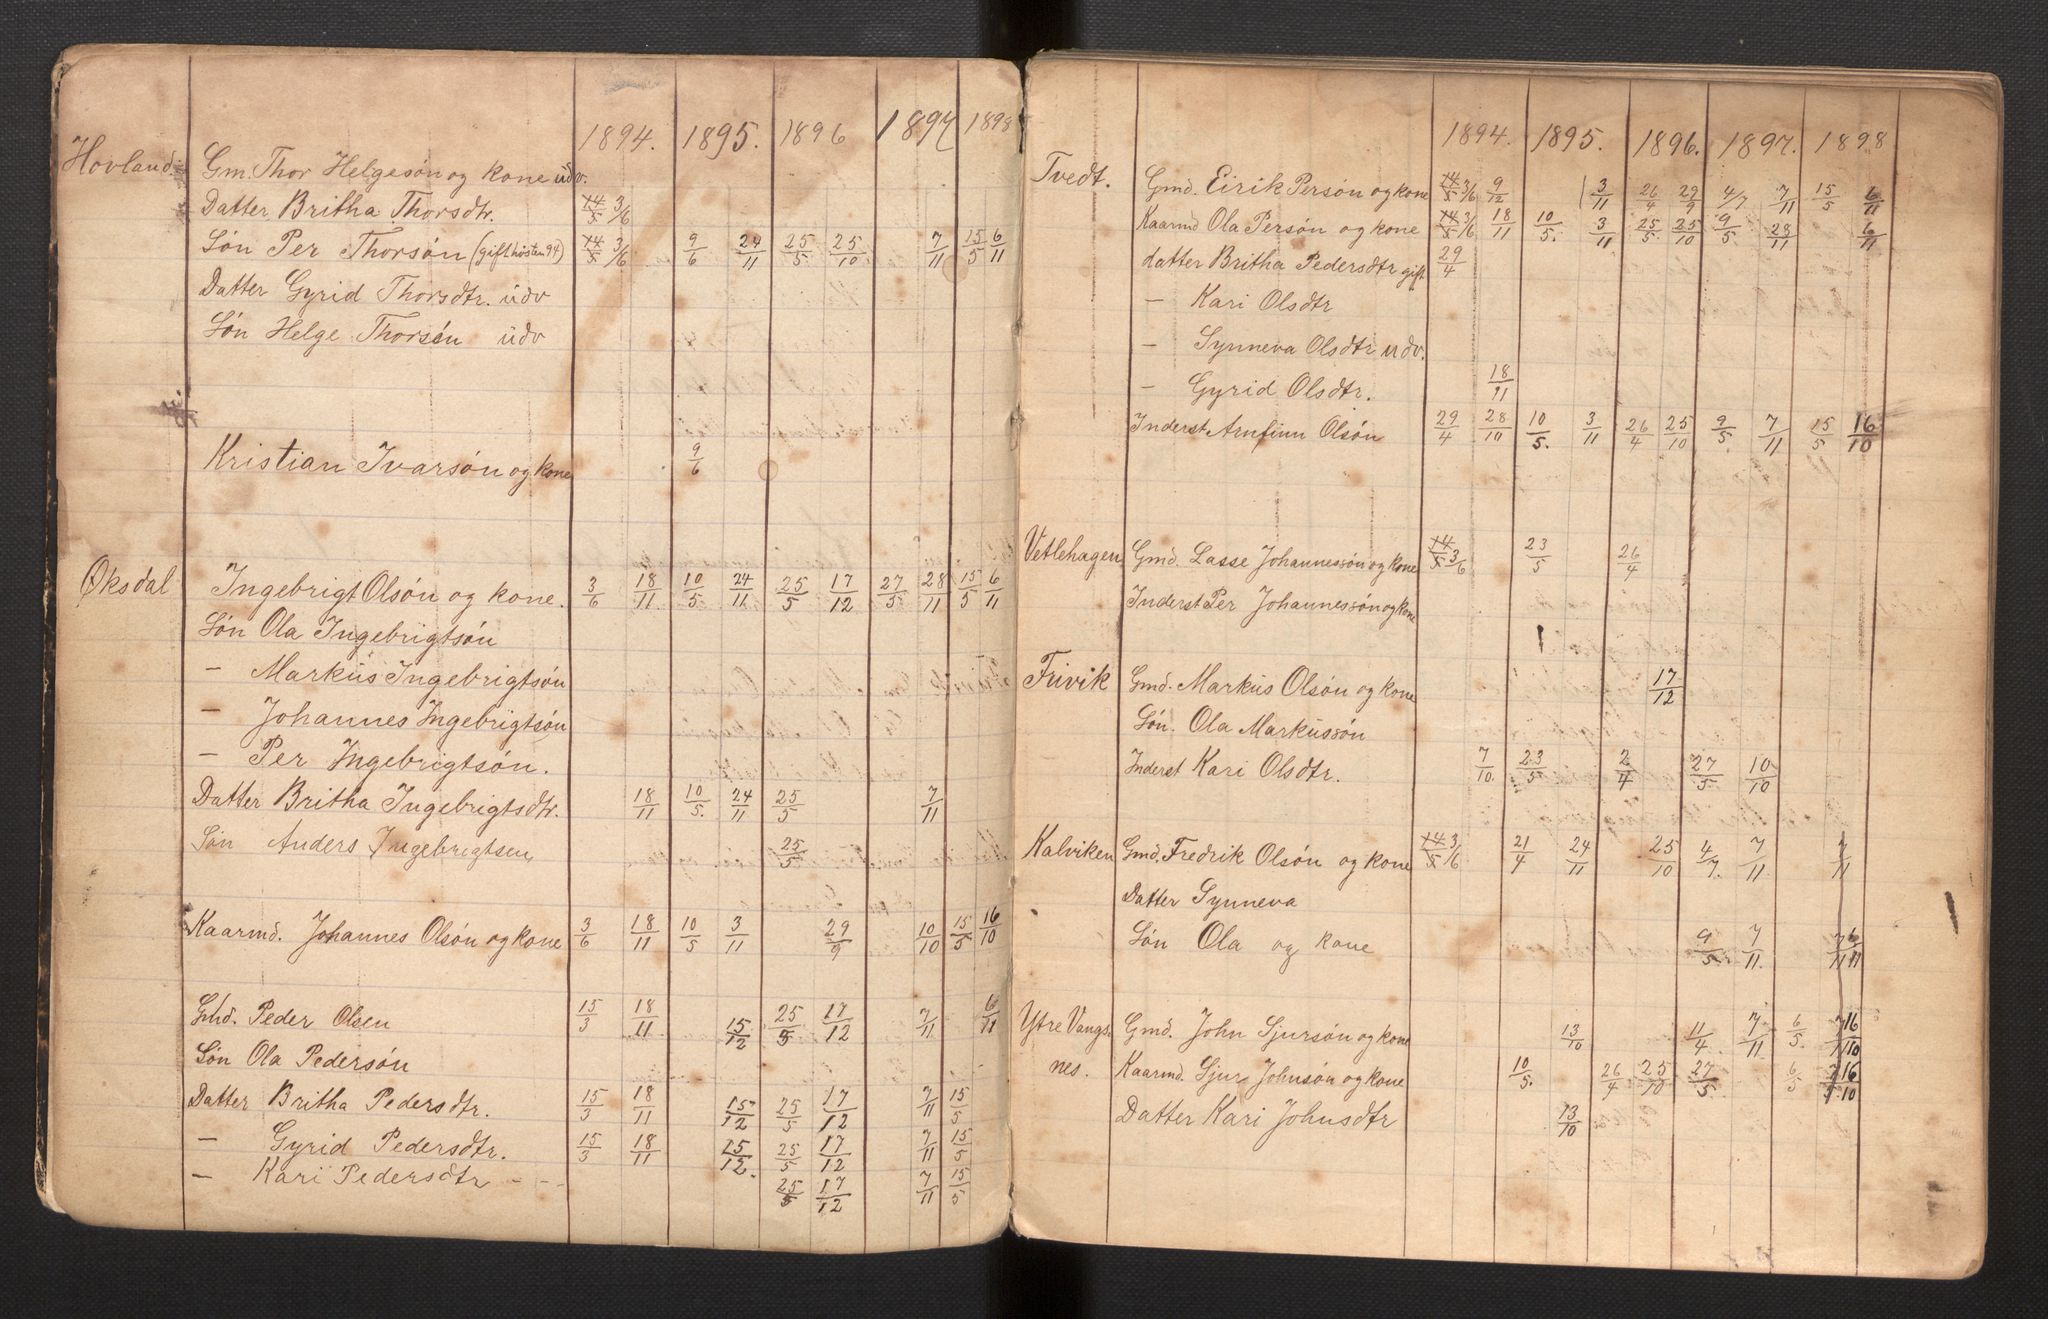 1894. 1895. 1896 1897 1898
Hovland. Gm. Thor Helgesøn og kone udv.
Datter Britha Thorsdtr. 14/5 3/6
Søn Per Thorsøn (gift høsten 94) 14/5 3/6 9/6 24/11 25/5 25/10 7/11 15/5 6/11
Datter Gyrid Thorsdtr. udv
Søn Helge Thorsøn udv
Kristian Ivarsøn og kone 9/6
Øksdal Ingebrigt Olsøn og kone. 3/6 18/11 10/5 24/11 25/5 17/12 27/5 28/11 15/5 6/11
Søn Ola Ingebrigtsøn
– Markus Ingebrigtsøn
– Johannes Ingebrigtsøn
– Per Ingebrigtsøn.
Datter Britha Ingebrigtsdtr. 18/11 10/5. 24/11 25/5 7/11
Søn Anders Ingebrigtsen 25/5
Kaarmd. Johannes Olsøn og kone 3/6 18/11 10/5 3/11 29/9 10/10 15/5 16/10
Peder Olsen 15/3 18/11 15/12 25/5 17/12 7/11 6/11
Søn Ola Pedersøn
Datter Britha Pedersdtr. 15/3 18/11 15/12 25/5 17/12 7/11 15/5
– Gyrid Pedersdtr. 15/3 18/11 15/12. 25/5 17/12 7/11 15/5
– Kari Pedersdtr - - - 25/5 17/12 7/11 15/5
1894. 1895. 1896. 1897. 1898
Tvedt. Gmd. Eirik Persøn og kone 14/5 3/6 9/12 3/11 26/4 29/9 4/7 7/11 15/5 6/11
Kaarmd Ola Persøn og kone 14/5 3/6 18/11 10/5. 3/11 25/5 25/10 9/5 28/11 6/11
datter Britha Pedersdtr gift 29/4
– Kari Olsdtr
– Synneva Olsdtr udv.
– Gyrid Olsdtr. 18/11
Inderst Arnfinn Olsøn 29/4 28/10 10/5. 3/11 26/4 25/10 9/5. 7/11 15/5 16/10
Vetlehagen Gmd. Lasse Johannessøn og kone 14/5 3/6 23/5 26/4
Inderst Per Johannessøn og kone
Trivik Gmd. Markus Olsøn og kone 17/12
Søn. Ola Markussøn
Inderst Kari Olsdtr. 7/10 23/5 2/4 27/5 10/10
Kalviken Gmd. Fredrik Olsøn og kone 14/5 3/6 21/4 24/11 25/10 4/7. 7/11 7/11
Datter Synneva
Søn Ola og kone 9/5 7/11 7/11 6/11
Ytre Vangs- Gmd. John Sjursøn og kone 13/10 11/4 7/11 6/5. 7/11 16/10
nes. Kaarmd. Sjur Johnsøn og kone 10/5. 26/4 25/10 27/5. 6/5 16/10
Datter Kari Johnsdtr 13/10